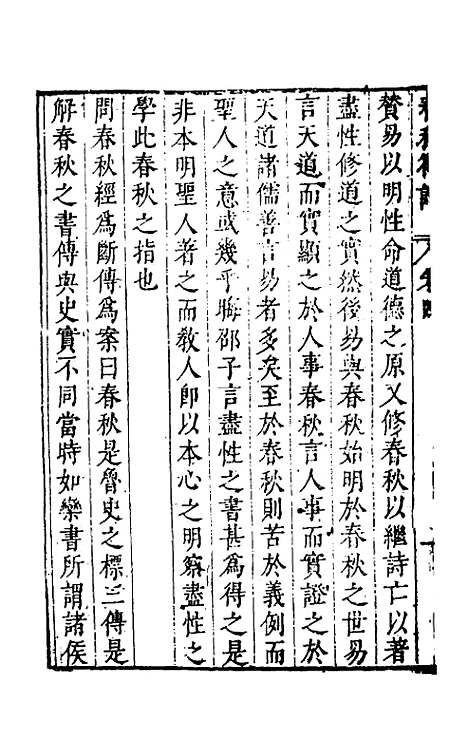 贊易以明性命道德之原又修春秋以繼詩亡以著
盡性修道之實然後易與春秋始明於春秋之世易
言天道而實顯之於人事春秋言人事而實證之於
天道諸儒善言易者多矣至於春秋則苦於義例而
聖人之意或幾乎晦邵子言盡性之書甚爲得之是
非本明聖人著之而敎人卽以本心之明察盡性之
學此春秋之指也
問春秋經爲斷傳爲案曰春秋是魯史之標三傳是
解春秋之書傳與史實不同當時如欒書所謂諸侯